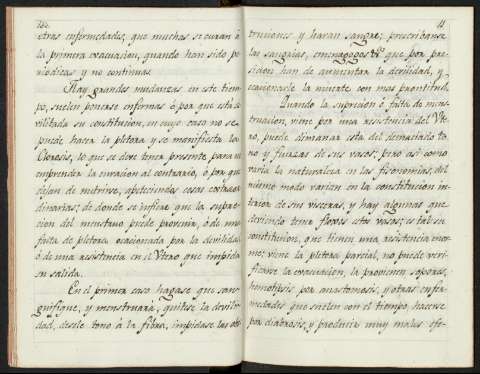 otras enfermedades, que muchas se curan á
la primera evacuacion, quando han sido pe-
riodicas y no continuas.
Hay grandes mudanzas en este tiem-
po, suelen ponerse enfermas ó por que está de-
vilitada su constitucion, en cuyo caso no se
puede hacer la pletora y se manifiesta la
Clorosis, lo que se deve tener presente, para no
emprender la curacion al contrario, ó por que
dejan de nutrirse, apeteciendo cosas extraor-
dinarias; de donde se infiere que la supre-
cion del menstruo puede provenir, ó de una
falta de pletora, ocacionada por la devilidad,
ó de una resistencia en el Utero que impida
su salida.
En el primer caso hagase que san-
guifique, y menstruará, quitese la devili-
dad, desele tono á la fibra, impidase las obs-
11
trucciones y haran sangre; proscribanse
las sangrias, emenagogos &a. que por pre-
sicion han de aumentar la devilidad, y
ocacionarle la muerte con mas prontitud.
Quando la suprecion ó falta de mens-
truacion, viene por una resistencia del Ute-
ro, puede dimanar esta del demaciado to-
no y fuerzas de sus vasos; pero asi como
varia la naturaleza en las fisonomias, del
mismo modo varian en la constitucion in-
terior de sus visceras, y hay algunas que
deviendo tener flojos estos vasos; es tal su
constitucion, que tienen una resistencia enor-
me; viene la pletora parcial, no puede veri-
ficarse la evacuacion, la provienen sopores,
hemotisis por anastomosis, y otras enfer-
medades que suelen con el tiempo, hacerse
por diabrosis, y producir muy malos efe-